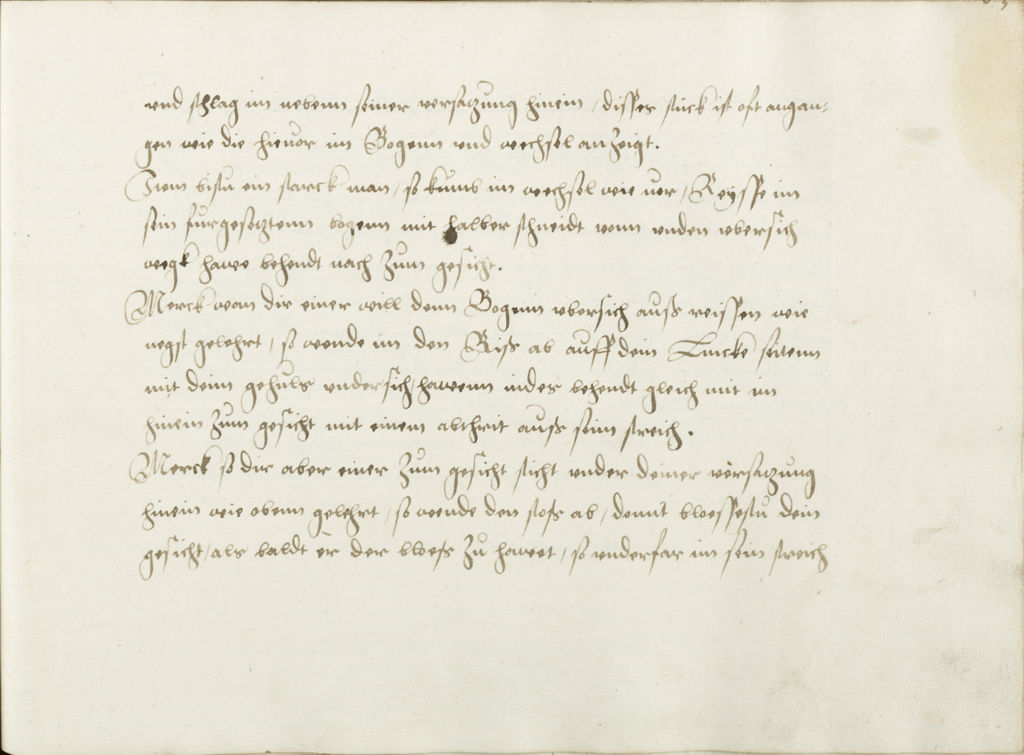 vnd schlag im nebenn seiner versatzung hinein / disses stuck ist oft angan:
gen wie die hieuor im Bogenn vnd wechsel anzeigt.
Item bistu ein starck man / so kumb im wechsel wie vor / Reysse im
sein furgesetztenn bogenn mit halber schneidt vonn vnden vbersich
wegk hawe behendt nach zum gesicht.
Merck wan dir einer will denn Bogenn vbersich auß reissen wie
negst gelehrt / so wende im den Riß ab auff dein Lincke seitenn
mit deim gehuls vndersich / hawenn indes behendt gleich mit im
hinein zum gesicht mit einem abthrit auß seim streich.
Merck so dir aber einer zum gesicht sticht vnder deiner versatzung
hinein wie obenn gelehrt / so wende den stoß ab / domit bloessestu dein
gesicht / als baldt er der bloeß zu hawet / so vnderfar im sein streich